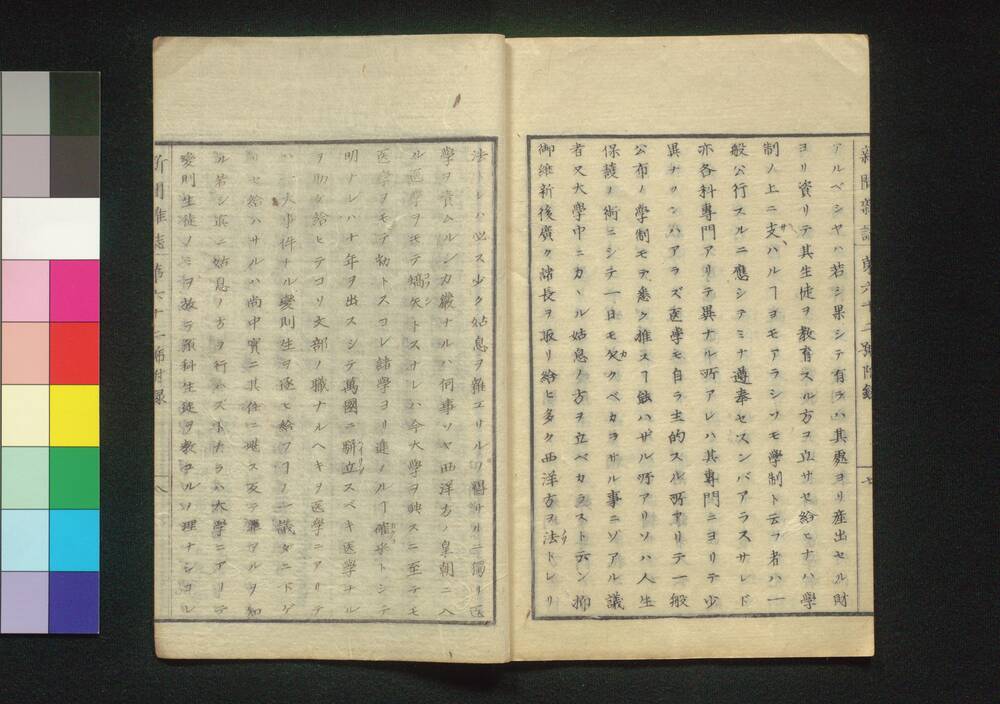 新聞雜誌 第六十二號附錄 七
アルベシヤハ若シ果シテ有ラハ其處ヨリ産出セル財
ヨリ資リテ其生徒ヲ教育スル方コ立サセ給ヒナハ學
制ノ上ニ支ハルヿヨモアラシソモ學制ト云フ者ハ一
般公行スルニ應シテミナ遵奉セスンバアラスサレド
亦各科專門アリテ異ナル所アレハ其專門ニヨリテ少
異ナクンハアラズ医學モ自ラ生的スル所ヤリテ一般
公布ノ學制モテ悉ク推スヿ能ハザル所アリソハ人生
保護ノ術ニシテ一日モ欠クベカラサル事ニゾアル議
者又大學中ニカヽル姑息ノ方ヲ立ベカラスト云ン抑
御維新後廣ク諸長ヲ取リ給ヒ多ク西洋方ヲ法トレリ
法トレハ必ス少ク姑息ヲ雜エサルヲ得サルニ獨リ医
學ヲ責ムルシカ嚴ナルハ何事ソヤ西洋方ノ皇朝ニ入
ル医學ヲ以テ嚆矢トスナレハ今大學ヲ映スニ至テモ
医學ヲモテ初トスコレ諸學ヨリ進ノルヿ確乎トシテ
明ナレハ十年ヲ出スシテ萬國ニ駢立スベキ医學ナル
ヲ助ケ給ヒテコリ文部ノ職ナルヘキヲ医學ニアリテ
ハ一大事件ナル變則生ヲ逐ヒ給フヿノ一議ダニトゲ
サセ給ハサルハ尚中實ニ其任ニ堪ス
ル若シ返ニ姑息ノ方ヲ行ハズトナラハ大學ニアリテ
變則生徒ノミヲ放テ預科生徒ヲ教ユルノ理ナシコレ
新聞雜誌 第六十二號附錄 八